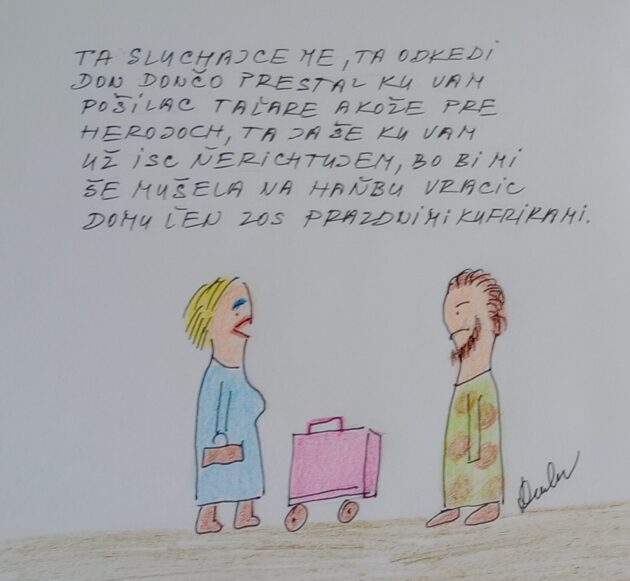 TA SLUCHAJCE ME, TA ODKEDI
DON DONČO PRESTAL KU VAM
POŠILAC TALARE AKOŽE PRE
HEROJOCH, TA JA ŠE KU VAM
UŽ ISC ŇERICHTUJEM, BO BI MI
ŠE MUŠELA NA HAŇBU VRACIC
DOMU ĽEN ZOS PRAZDNIMI KUFRIKAMI.